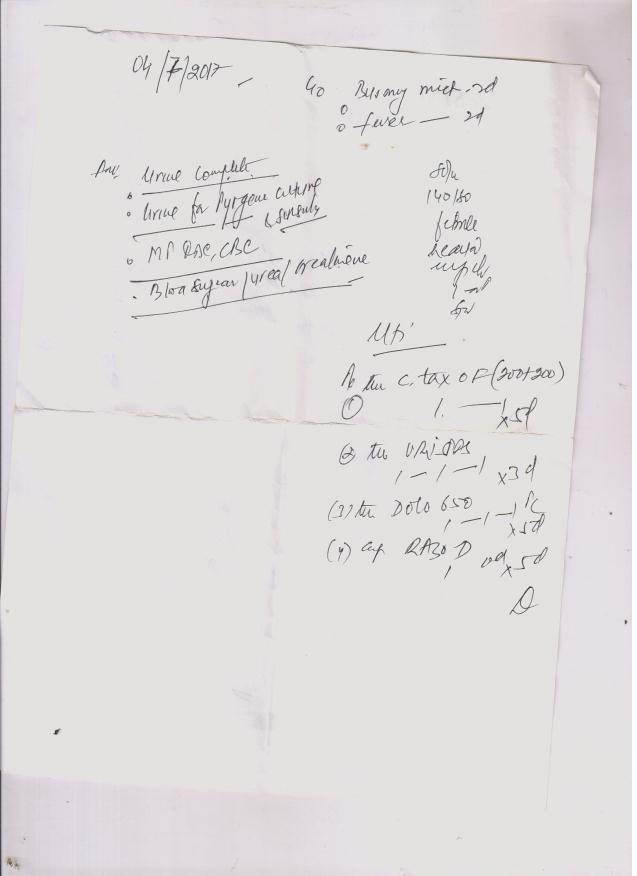 04/7/2017
C/o
Burning mict. 2d
fever — 2d
Adv:
Urine Complete
Urine for Pyogenic culture
& sensitivity
MP QBC, CBC
Blood sugar/urea/creatinine
140/80
febrile
UTI
Rx
① Tab C. tax OF (200+200)
1 — 1 x5d
(2) Tab URISPAS
1 — 1 — 1 x3d
(3) Tab DOLO 650
1 — 1 — 1 x5d
(4) Cap RABO D
1 od x5d